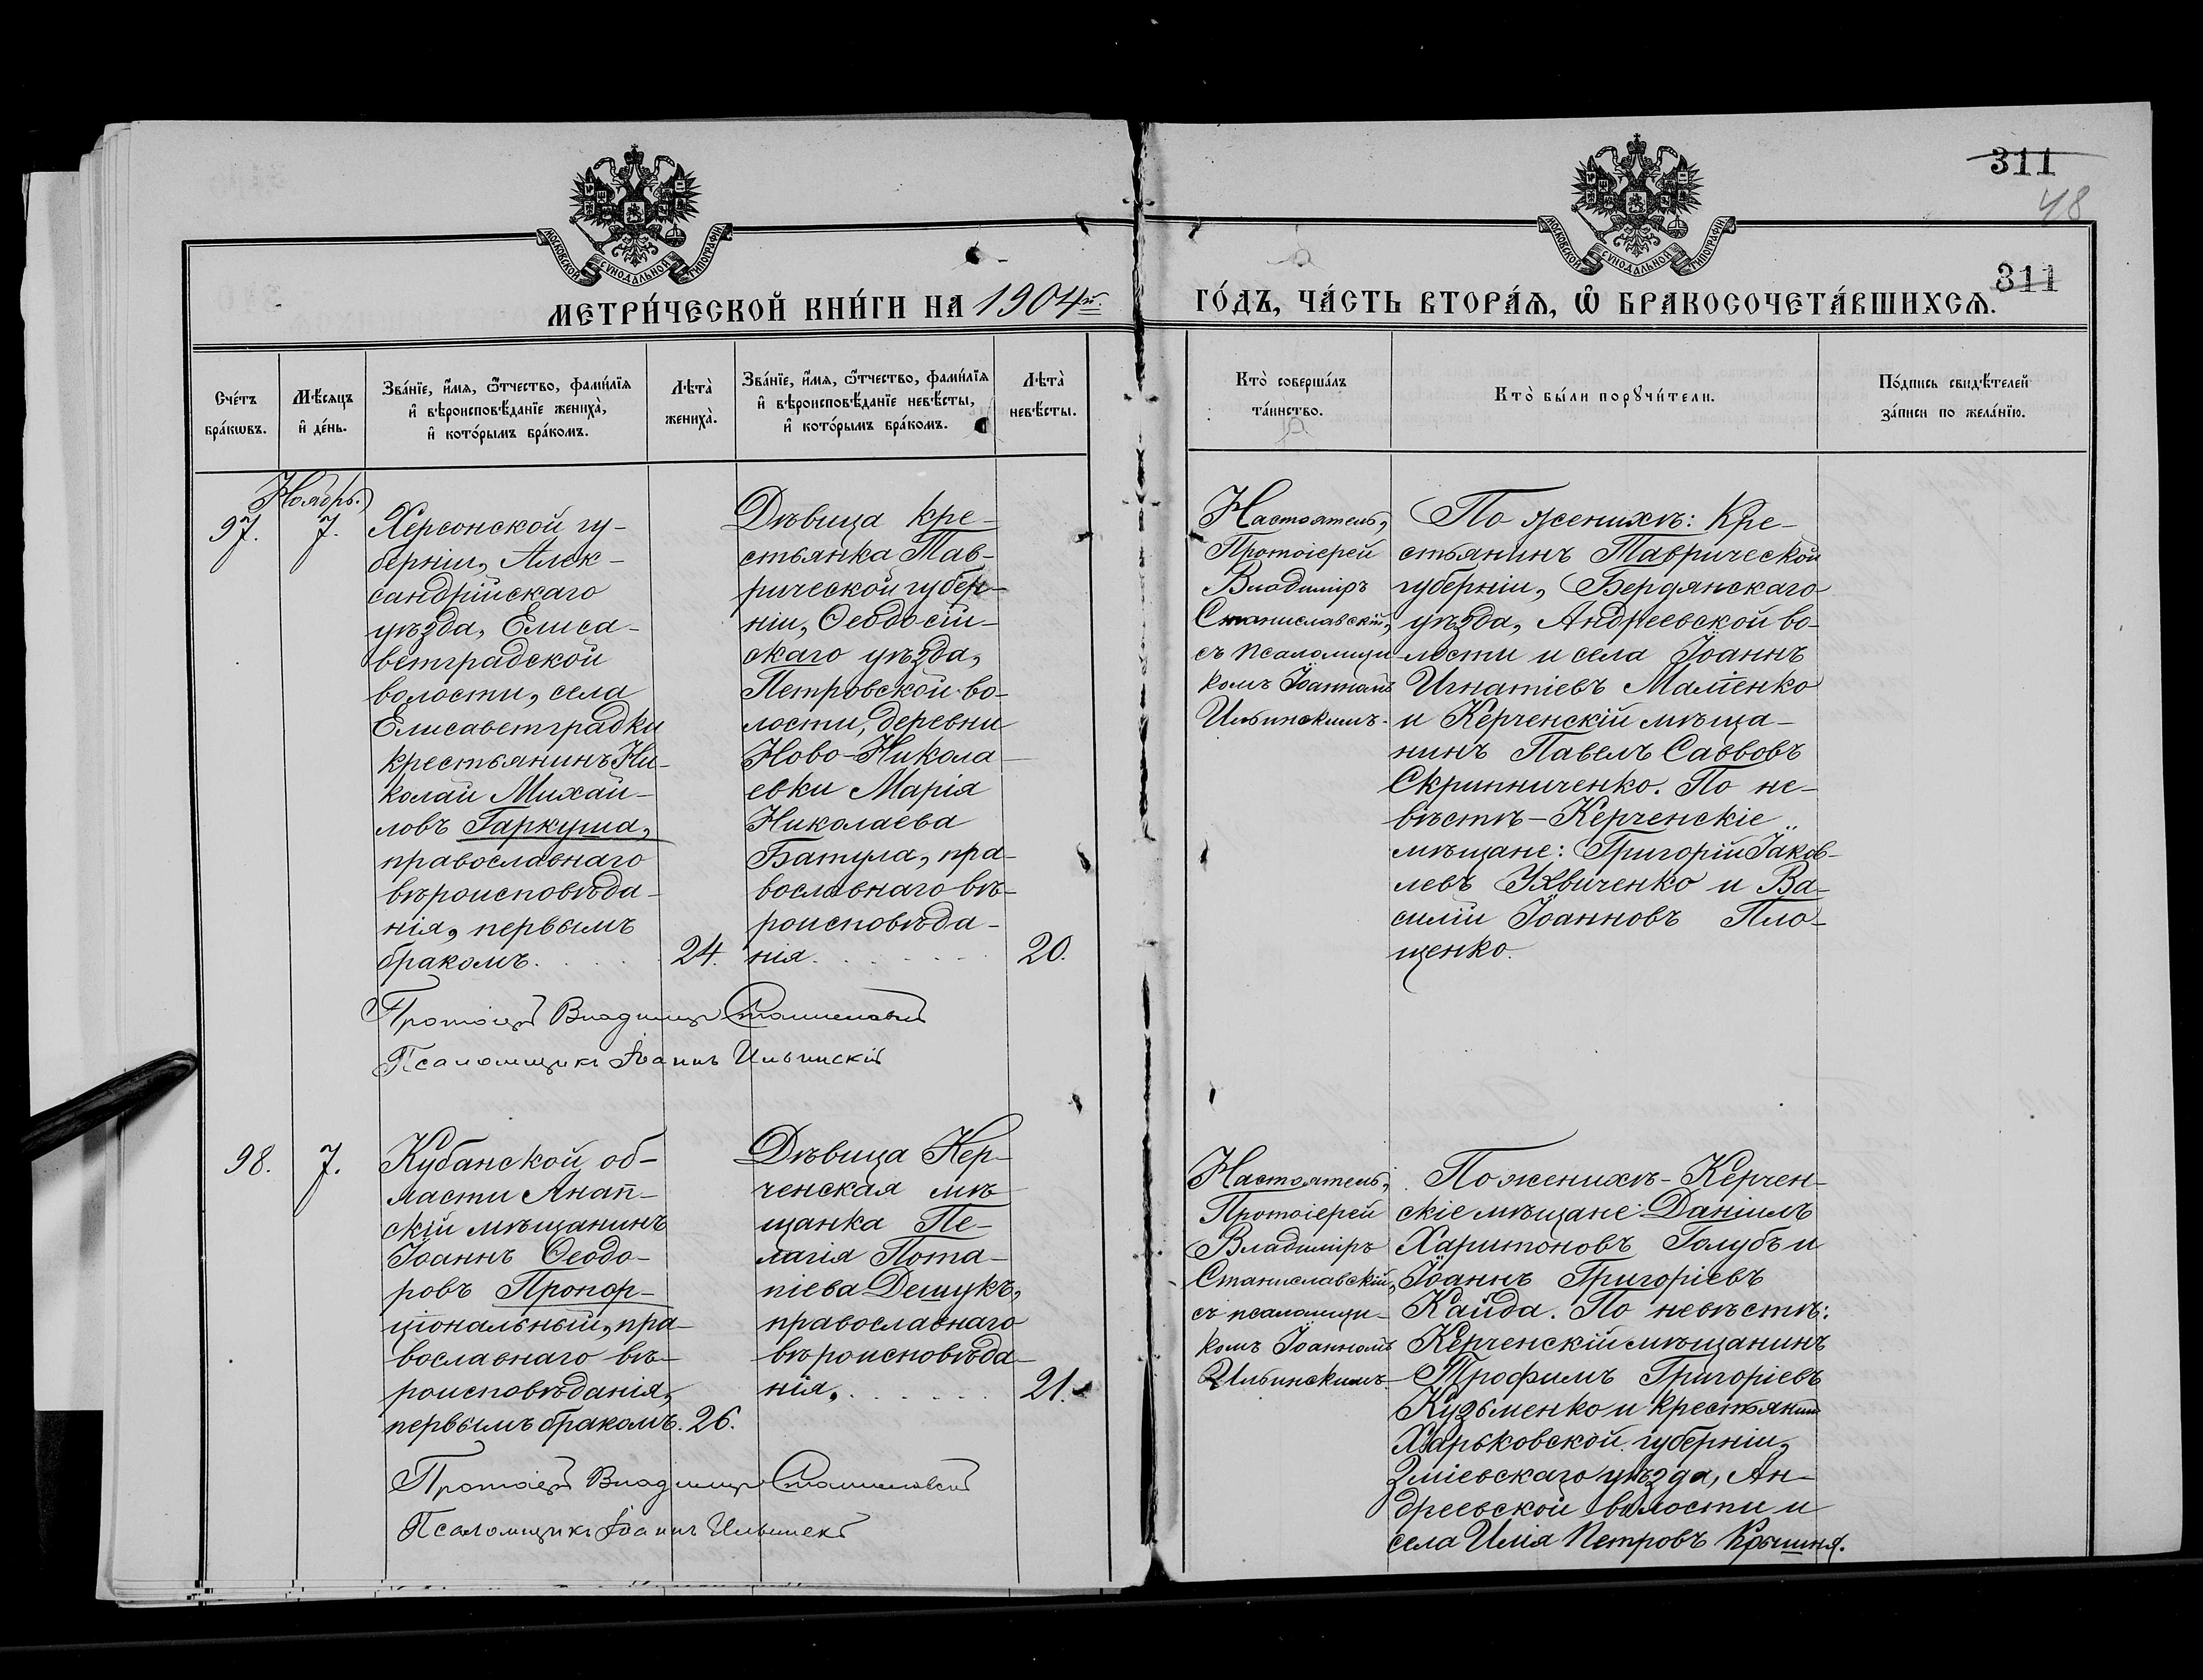 311
48
МОСКОВСКОЙ СѴНОДАЛЬНОЙ ТИПОГРАФІИ
МОСКОВСКОЙ СѴНОДАЛЬНОЙ ТИПОГРАФІИ
311
МЕТРИ́ЧЕСКОЙ КНИ́ГИ НА 1904й ГО́ДЪ, ЧА́СТЬ ВТОРА́Я, Ѡ҆ БРАКОСОЧЕТА́ВШИХСѦ.
Сче́тъ
бра́кωвъ.
Мѣ́сяцъ
и҆ де́нь.
Зва́нїе, и҆́мя, ѻ҆́тчество, фами́лїя
и҆ вѣроисповѣ́данїе жениха̀,
и҆ кото́рымъ бра́комъ.
Лѣта̀
жениха̀.
Зва́нїе, и҆́мя, ѻ҆́тчество, фами́лїя
и҆ вѣроисповѣ́данїе невѣ́сты,
и҆ кото́рымъ бра́комъ.
Лѣта̀
невѣ́сты.
Кто̀ соверша́лъ
та́инство.
Кто̀ бы́ли порꙋчи́тели.
По́дпись свидѣ́телей
за́писи по жела́нїю.
Ноябрь.
97.
7.
Херсонской гу-
берніи, Алек-
сандрійскаго
уѣзда, Елиса-
ветградской
волости, села
Елисаветградки
крестьянинъ Ни-
колай Михай-
ловъ Гаркуша,
православнаго
вѣроисповѣда-
нія, первымъ
бракомъ.
24.
Дѣвица кре-
стьянка Тав-
рической губер-
ніи, Ѳеодосій-
скаго уѣзда,
Петровской во-
лости, деревни
Ново-Никола-
евки Марія
Николаева
Батула, пра-
вославнаго вѣ-
роисповѣда-
нія.
20.
Настоятель,
Протоіерей
Владиміръ
Станиславскій,
съ псаломщи-
комъ Іоанномъ
Ильинскимъ.
По женихѣ: Кре-
стьянинъ Таврической
губерніи, Бердянскаго
уѣзда, Андреевской во-
лости и села Іоаннъ
Игнатіевъ Матенко
и Керченскій мѣща-
нинъ Павелъ Саввовъ
Скрипниченко. По не-
вѣстѣ - Керченскіе
мѣщане: Григорій Іаков-
левъ Уквиченко и Ва-
силій Іоанновъ Пло-
щенко.
Протоіерей Владиміръ Станиславскій
Псаломщикъ Іоаннъ Ильинскій
98.
7.
Кубанской об-
ласти Анап-
скій мѣщанинъ
Іоаннъ Ѳеодо-
ровъ Пропор-
ціональный, пра-
вославнаго вѣ-
роисповѣданія,
первымъ бракомъ.
26.
Дѣвица Кер-
ченская мѣ-
щанка Пе-
лагія Пота-
піева Дешукъ,
православнаго
вѣроисповѣда-
нія.
21.
Настоятель,
Протоіерей
Владиміръ
Станиславскій,
съ псаломщи-
комъ Іоанномъ
Ильинскимъ.
По женихѣ - Керчен-
скіе мѣщане: Даніилъ
Харитоновъ Голубъ и
Іоаннъ Григоріевъ
Кайда. По невѣстѣ:
Керченскій мѣщанинъ
Трофимъ Григоріевъ
Кузьменко и крестьянинъ
Харьковской губерніи,
Зміевскаго уѣзда, Ан-
дреевской волости и
села Илія Петровъ Крышня.
Протоіерей Владиміръ Станиславскій
Псаломщикъ Іоаннъ Ильинскій